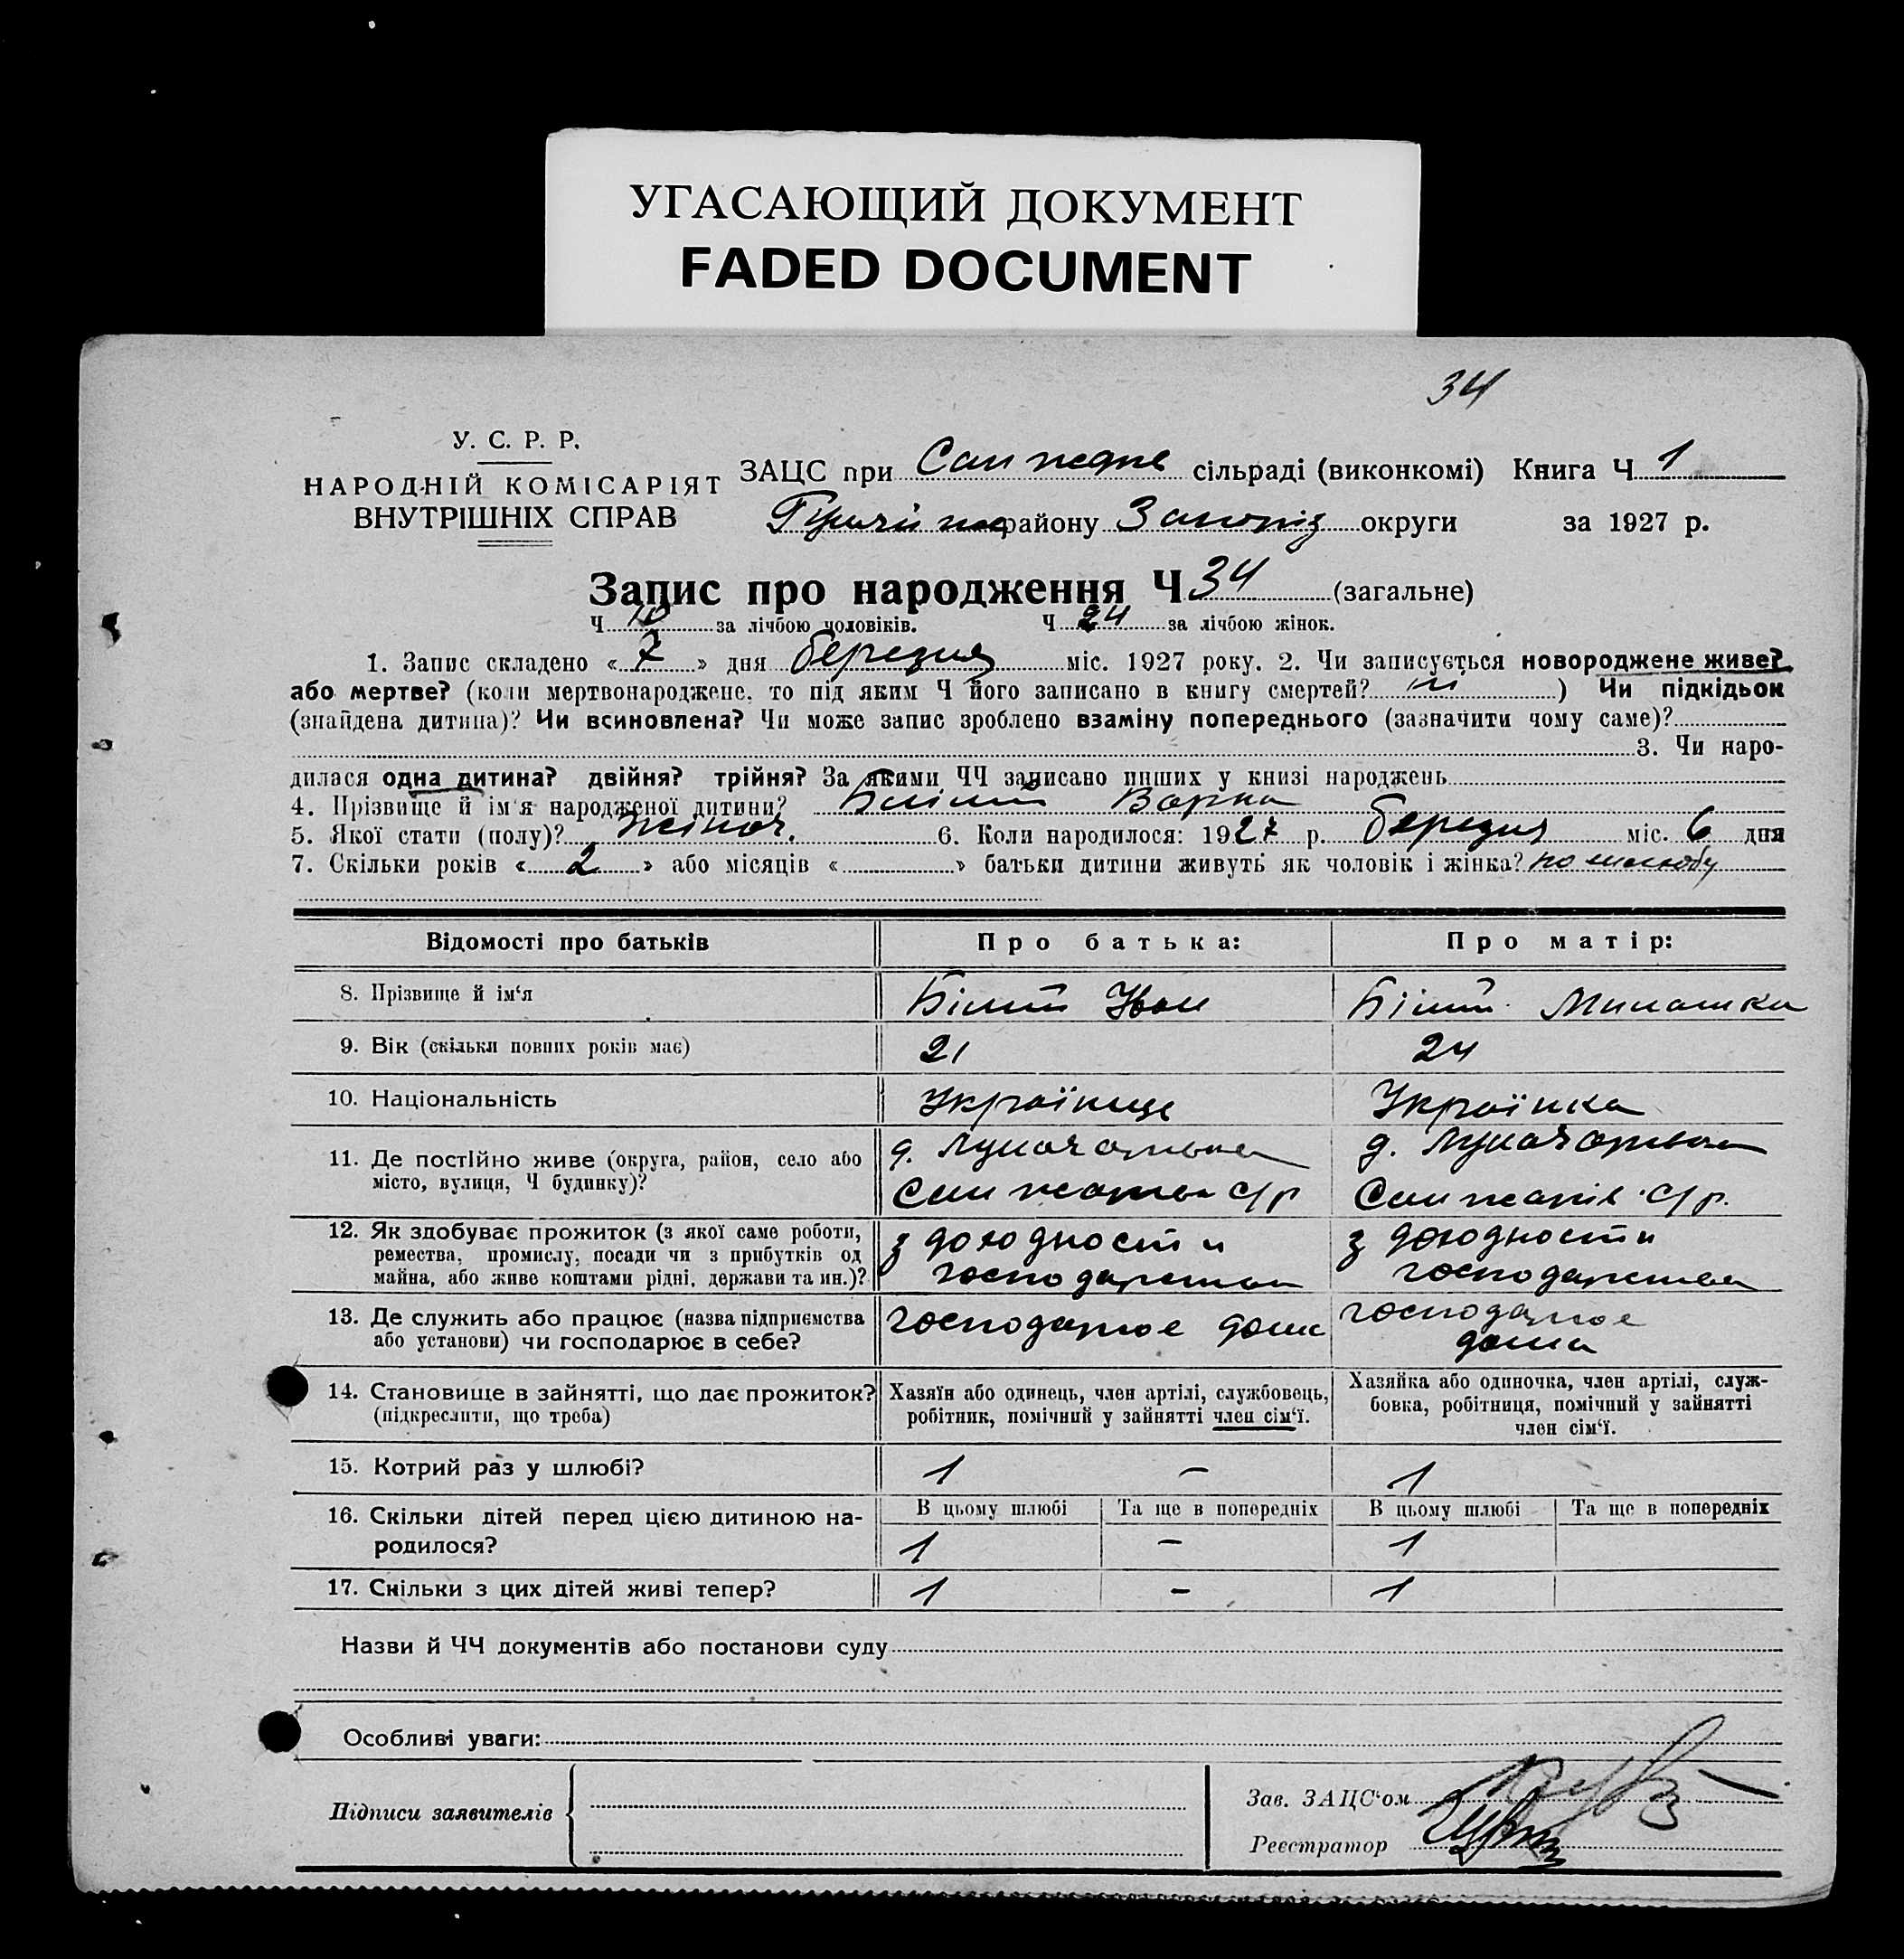 УГАСАЮЩИЙ ДОКУМЕНТ
FADED DOCUMENT
34
У. С. Р. Р.
НАРОДНІЙ КОМІСАРІЯТ
ВНУТРІШНІХ СПРАВ
ЗАЦС при сільраді (виконкомі) Книга Ч 1
району Запоріз округи за 1927 р.
Запис про народження Ч 34 (загальне)
Ч 10 за лічбою чоловіків. Ч 24 за лічбою жінок.
1. Запис складено « 7 » дня березня міс. 1927 року. 2. Чи записується новороджене живе?
або мертве? (коли мертвонароджене, то під яким Ч його записано в книгу смертей? ні ) Чи підкідьок
(знайдена дитина)? Чи всиновлена? Чи може запис зроблено взаміну попереднього (зазначити чому саме)?
3. Чи наро-
дилася одна дитина? двійня? трійня? За якими ЧЧ записано инших у книзі народжень
4. Прізвище й ім'я народженої дитини? Білий
5. Якої стати (полу)? жіноч. 6. Коли народилося: 1927 р. березня міс. 6 дня
7. Скільки років « 2 » або місяців « » батьки дитини живуть як чоловік і жінка? по шлюбу
Відомості про батьків Про батька: Про матір:
8. Прізвище й ім'я Білий Іван Білий
9. Вік (скільки повних років має) 21 24
10. Національність Українець Українка
11. Де постійно живе (округа, район, село або
місто, вулиця, Ч будинку)?
д. Луначарська д. Луначарська
с/р с/р.
12. Як здобуває прожиток (з якої саме роботи,
ремества, промислу, посади чи з прибутків од
майна, або живе коштами рідні, держави та ин.)?
з доходности з доходности
господарства господарства
13. Де служить або працює (назва підприємства
або установи) чи господарює в себе?
господарює дома господарює
дома
14. Становище в зайнятті, що дає прожиток?
(підкреслити, що треба)
Хазяїн або одинець, член артілі, службовець,
робітник, помічний у зайнятті член сім'ї.
Хазяйка або одиночка, член артілі, служ-
бовка, робітниця, помічний у зайнятті
член сім'ї.
15. Котрий раз у шлюбі? 1 – 1
16. Скільки дітей перед цією дитиною на-
родилося?
В цьому шлюбі Та ще в попередніх В цьому шлюбі Та ще в попередніх
1 – 1
17. Скільки з цих дітей живі тепер? 1 – 1
Назви й ЧЧ документів або постанови суду
Особливі уваги:
Підписи заявителів
Зав. ЗАЦС'ом
Реєстратор